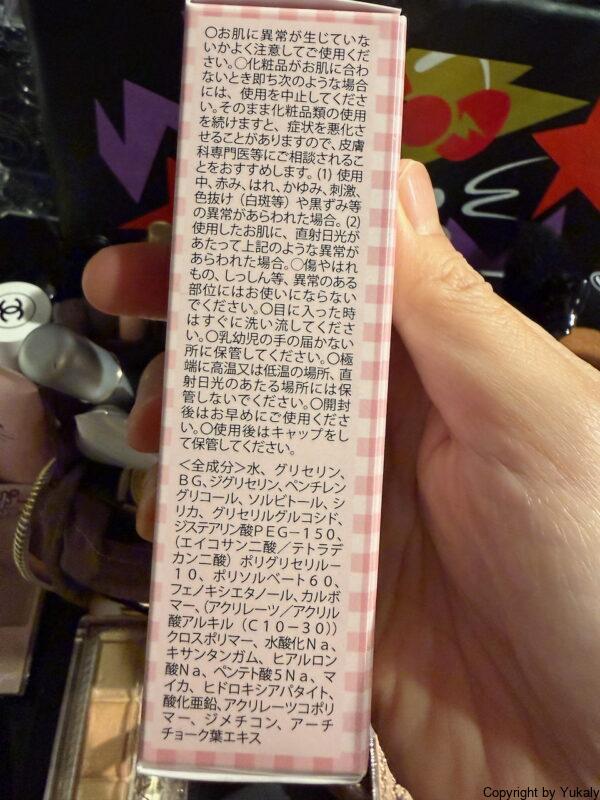 〇お肌に異常が生じていな
いかよく注意してご使用くだ
さい。〇化粧品がお肌に合わ
ないとき即ち次のような場合
には、使用を中止してくださ
い。そのまま化粧品類の使用
を続けますと、症状を悪化さ
せることがありますので、皮膚
科専門医等にご相談されるこ
とをおすすめします。(1) 使用
中、赤み、はれ、かゆみ、刺激、
色抜け（白斑等）や黒ずみ等
の異常があらわれた場合。(2)
使用したお肌に、直射日光が
あたって上記のような異常が
あらわれた場合。〇傷やはれ
もの、しっしん等、異常のある
部位にはお使いにならない
でください。〇目に入った時
はすぐに洗い流してくださ
い。〇乳幼児の手の届かない
所に保管してください。〇極
端に高温又は低温の場所、直
射日光のあたる場所には保
管しないでください。〇開封
後はお早めにご使用くださ
い。〇使用後はキャップをし
て保管してください。
＜全成分＞水、グリセリン、
BG、ジグリセリン、ペンチレン
グリコール、ソルビトール、シ
リカ、グリセリルグルコシド、
ジステアリン酸PEG－150、
（エイコサン二酸／テトラデ
カン二酸）ポリグリセリル－
10、ポリソルベート60、
フェノキシエタノール、カルボ
マー、（アクリレーツ／アクリル
酸アルキル（C10－30））
クロスポリマー、水酸化Na、
キサンタンガム、ヒアルロン
酸Na、ペンテト酸5Na、マ
イカ、ヒドロキシアパタイト、
酸化亜鉛、アクリレーツコポリ
マー、ジメチコン、アーチ
チョーク葉エキス
Copyright by Yukaly